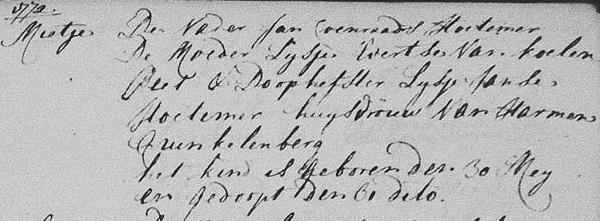 1770.
Mietje De Vader Jan Coenraads Hoetemer
De Moeder Lysje Evertse Van Koelen
Peet & Doophefster Lysje Janse
Hoetemer huysvrouw Van Harmen
Funkelenberg
het kind is geboren den 30 Mey
en gedoopt den 6 dito.